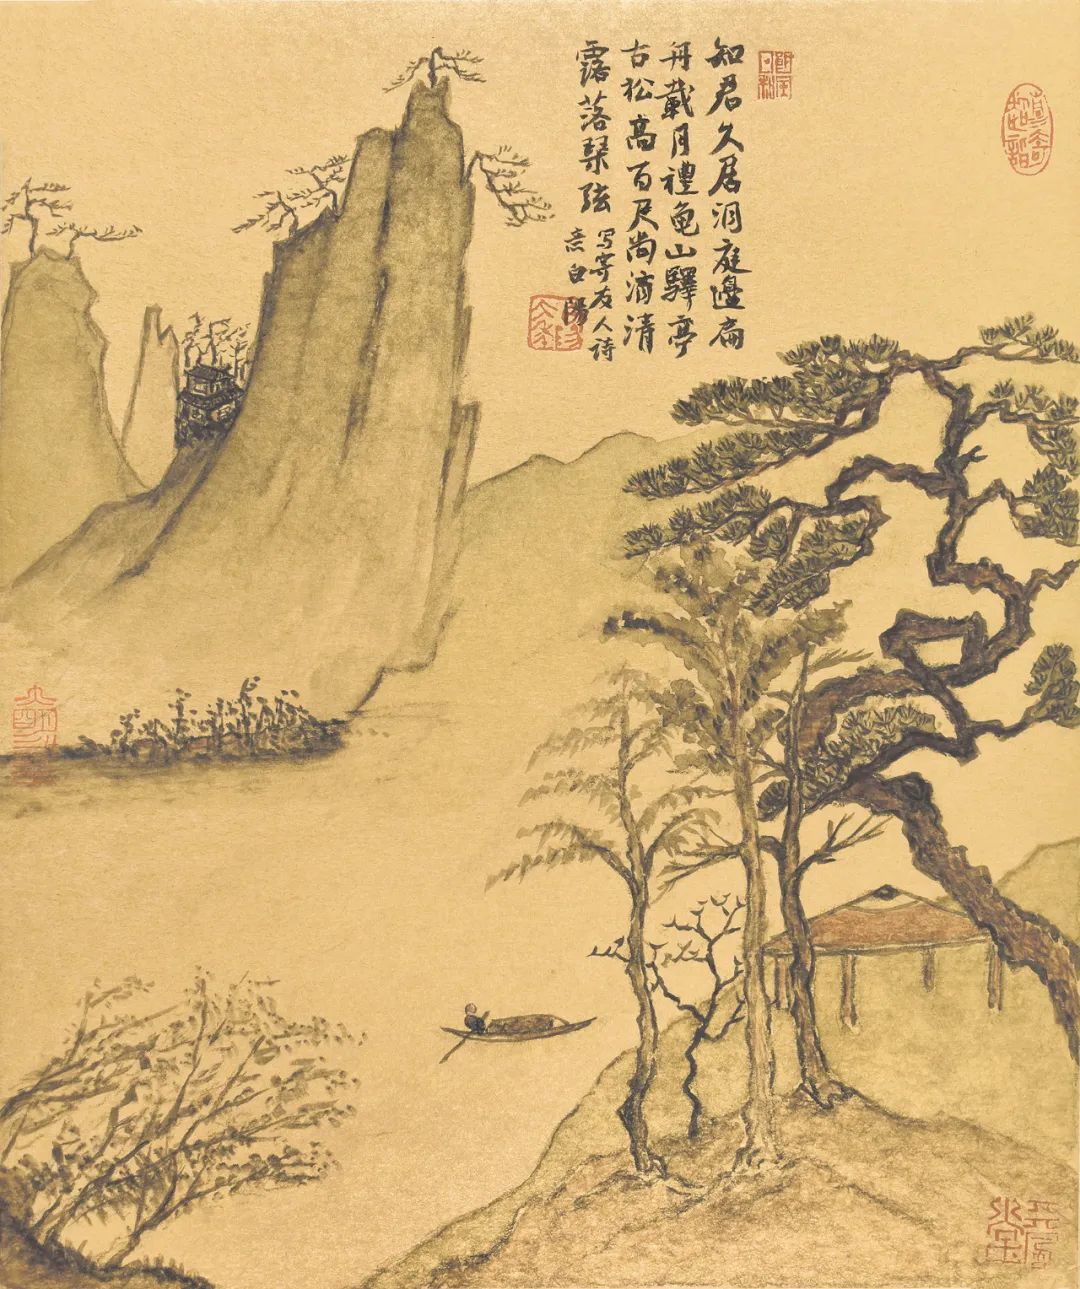 知君久居洞庭邊扁
舟載月禮龟山驛亭
古松高百尺尚滴清
露落琹弦
写寄友人诗
意白陽